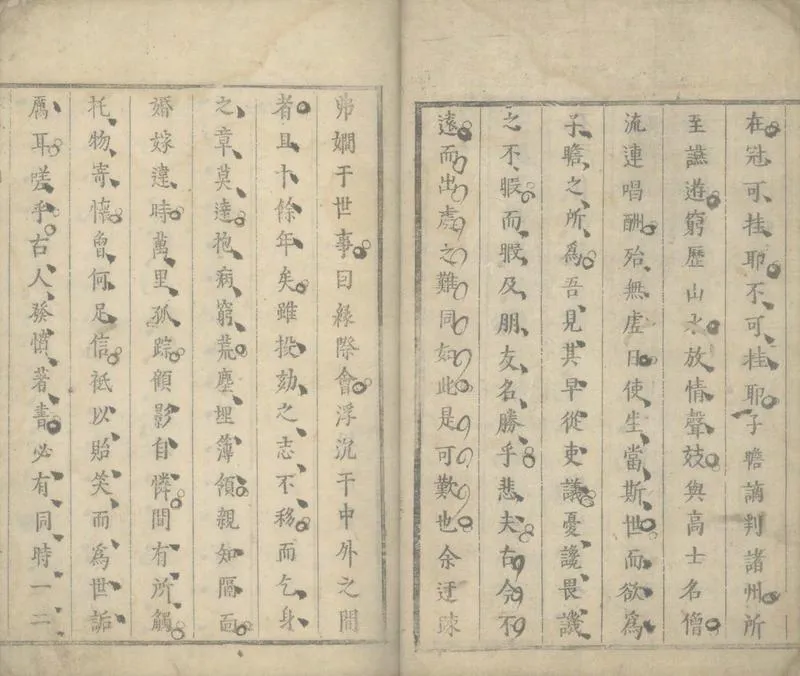 在冠可挂耶不可挂耶子瞻謫判諸州所
至讌遊窮歷山水放情聲妓與高士名僧
流連唱酬殆無虛日使生當斯世而欲爲
子瞻之所爲吾見其早從吏議憂讒畏譏
之不暇而暇及朋友名勝乎悲夫古今不
遠而出處之難同如此是可歎也余迂疎
弗嫻于世事曰緣際會浮沉于中外之間
者且卜餘年矣雖投劾之志不移而乞身
之章莫達抱病窮荒塵埋簿領親知隔面
婚嫁違時萬里孤踪顧影自憐間有所觸
托物寄懷曾何足信祗以貽笑而爲世詬
厲耳嗟乎古人發憤著書必有同時一二